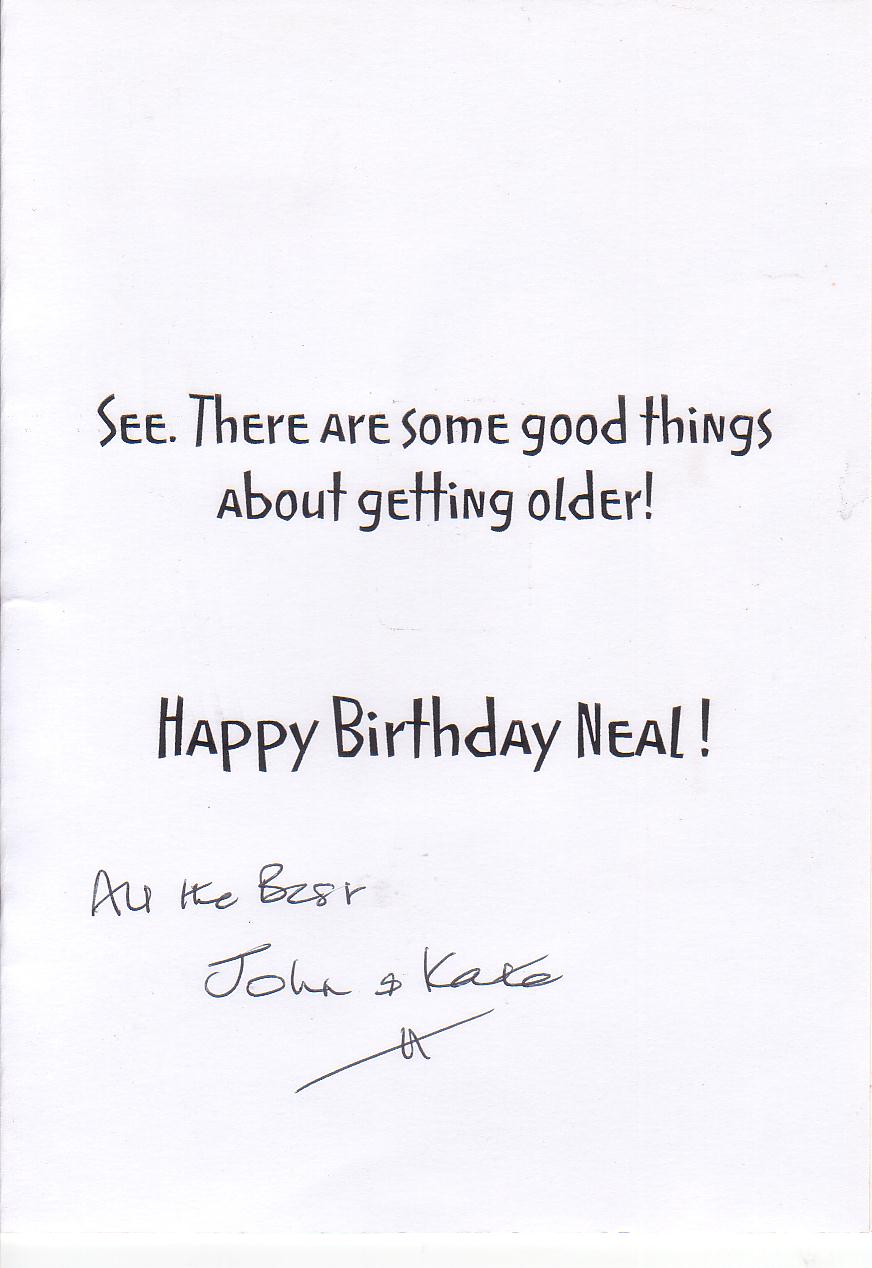 See. There are some good things
about getting older!
Happy Birthday Neal!
All the Best
John & Kate